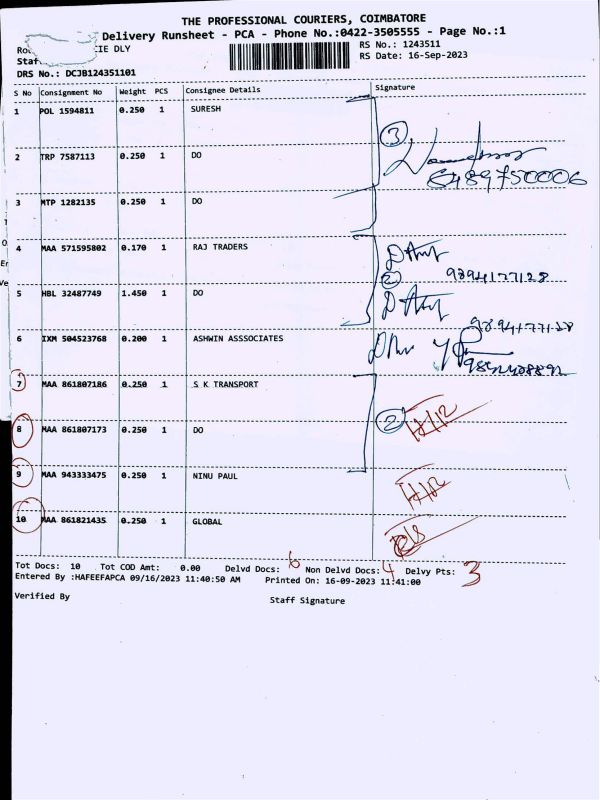 THE PROFESSIONAL COURIERS, COIMBATORE
Delivery Runsheet - PCA - Phone No.:0422-3505555 - Page No.:1
CIE DLY
RS No.: 1243511
Staf
RS Date: 16-Sep-2023
DRS No.: DCJB124351101
S No Consignment No Weight PCS Consignee Details Signature
1 POL 1594811 0.250 1 SURESH
3
2 TRP 7587113 0.250 1 DO
6489750006
3 MTP 1282135 0.250 1 DO
4 MAA 571595802 0.170 1 RAJ TRADERS
2 9894177128
5 HBL 32487749 1.450 1 DO
9894177128
6 IXM 504523768 0.200 1 ASHWIN ASSSOCIATES
7 MAA 861807186 0.250 1 S K TRANSPORT
2
8 MAA 861807173 0.250 1 DO
9 MAA 943333475 0.250 1 NINU PAUL
10 MAA 861821435 0.250 1 GLOBAL
Tot Docs: 10 Tot COD Amt: 0.00 Delvd Docs: 6 Non Delvd Docs: 4 Delvy Pts: 3
Entered By :HAFEEFAPCA 09/16/2023 11:40:50 AM Printed On: 16-09-2023 11:41:00
Verified By Staff Signature